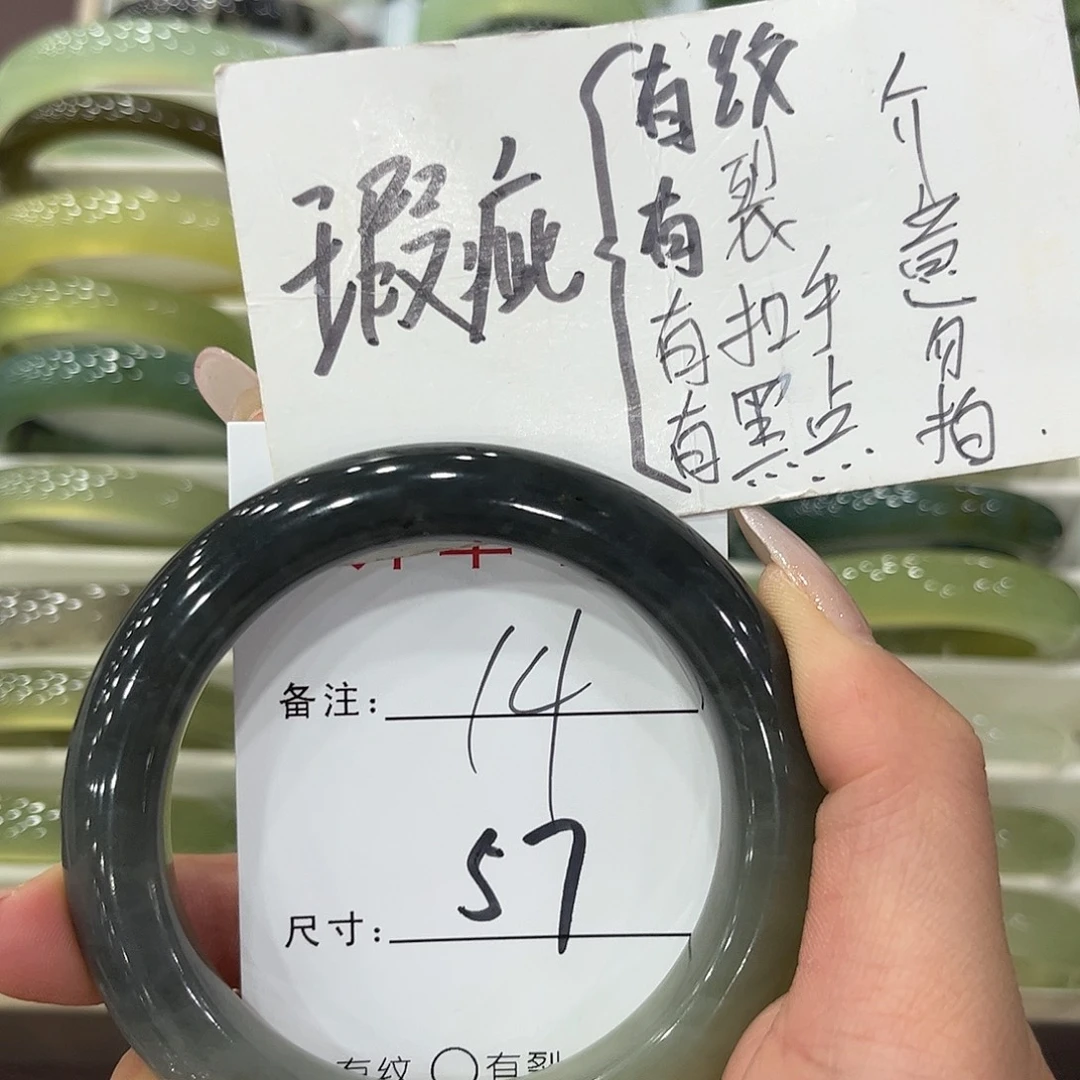 瑕疵
有纹
有裂
有扣手
有黑点
介意勿拍.
备注: 14
尺寸: 57
有纹 ○有裂